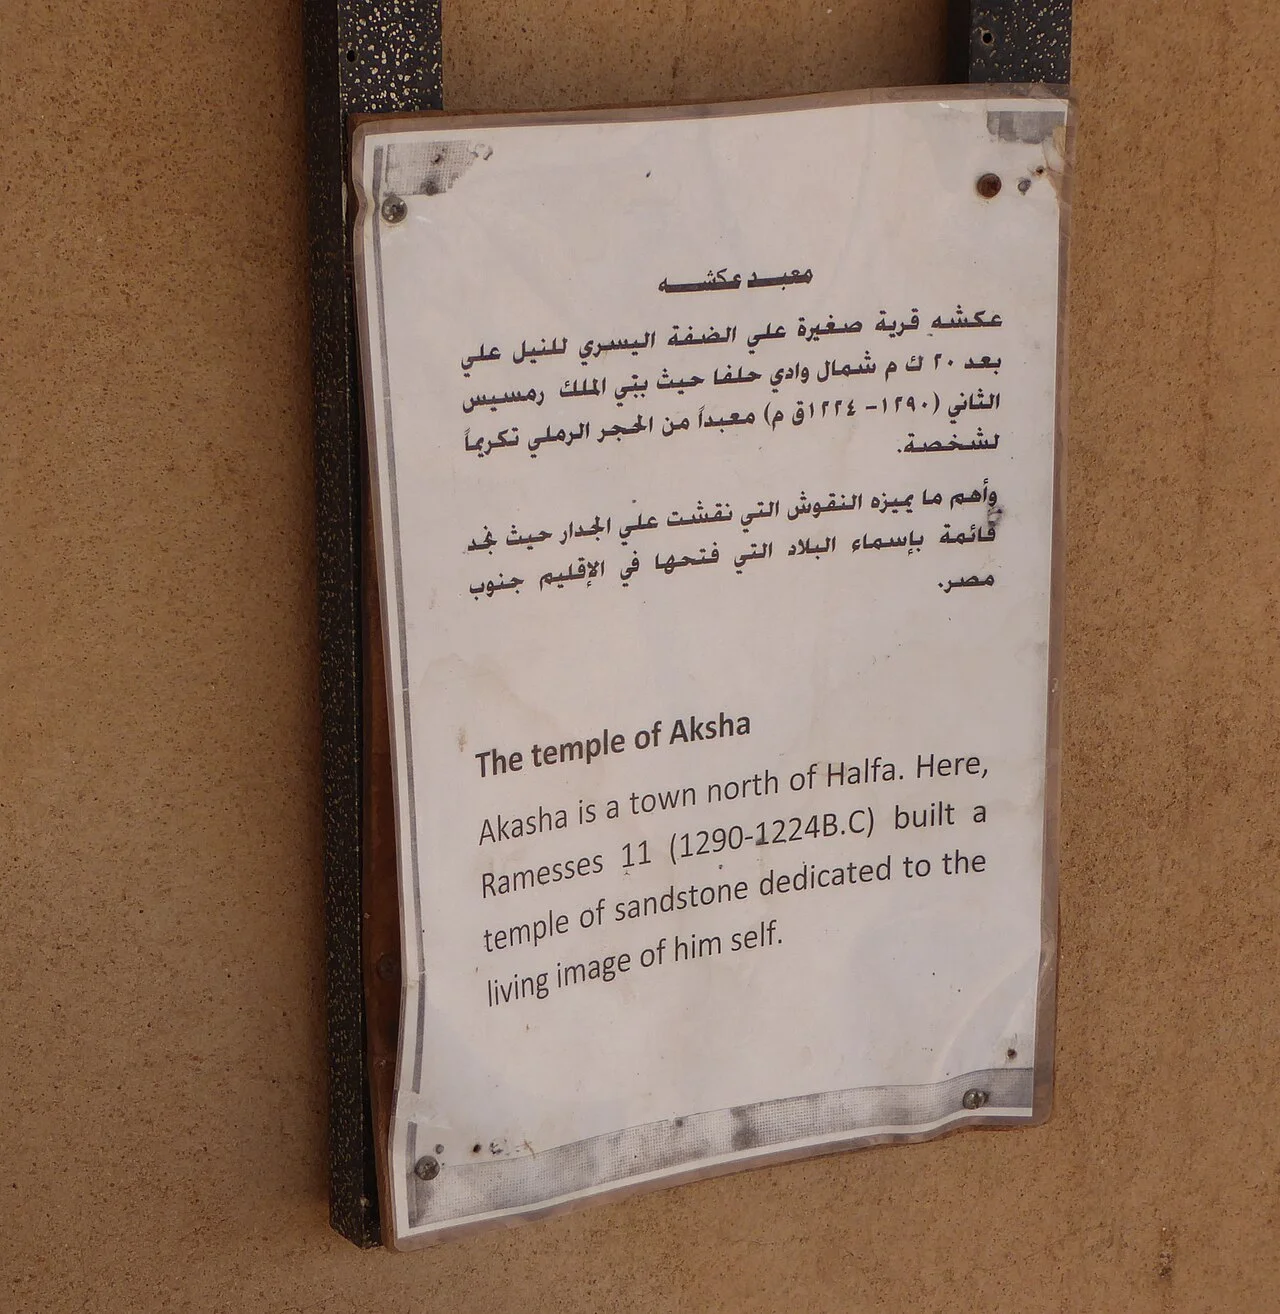 معبد عكشه
عكشه قرية صغيرة علي الضفة اليسري للنيل علي
بعد ٢٠ ك م شمال وادي حلفا حيث بني الملك رمسيس
الثاني (١٢٩٠- ١٢٢٤ق م) معبداً من الحجر الرملي تكريماً
لشخصة.
وأهم ما يميزه النقوش التي نقشت علي الجدار حيث نجد
قائمة بإسماء البلاد التي فتحها في الإقليم جنوب
مصر.
The temple of Aksha
Akasha is a town north of Halfa. Here,
Ramesses 11 (1290-1224B.C) built a
temple of sandstone dedicated to the
living image of him self.